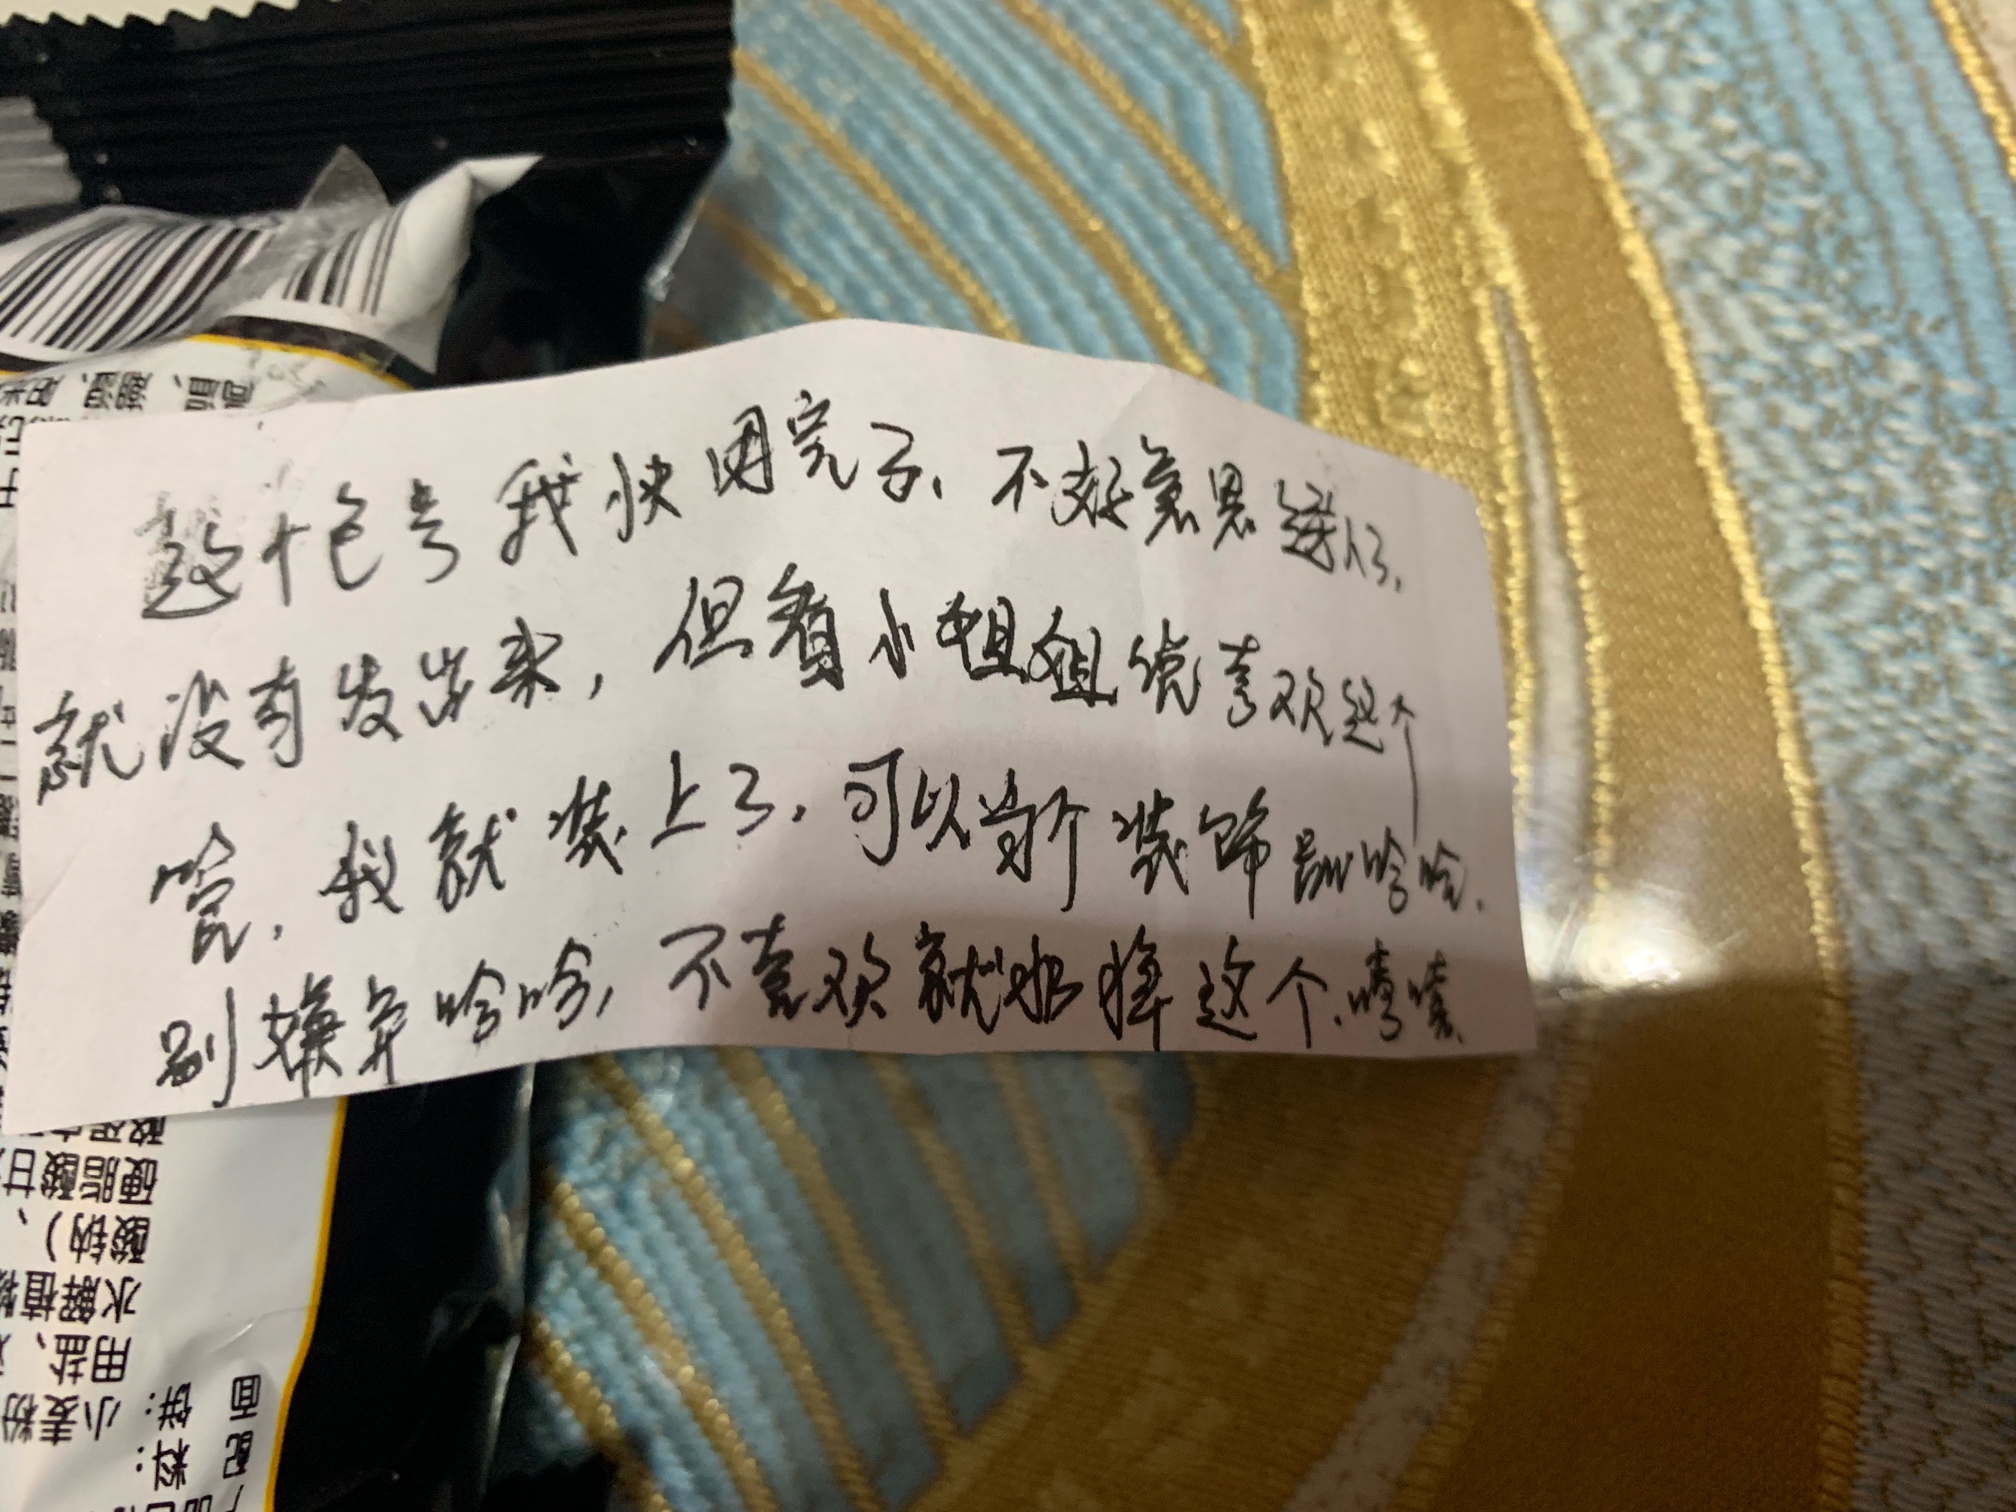 这个色号我快用完了、不好意思送人了,
就没有发出来,但看小姐姐说喜欢这个
管,我就装上了,可以当个装饰品哈哈.
别嫌弃哈哈,不喜欢就扔掉这个.嘻嘻
硬脂酸甘
酸钠)、
水解植
用盐、
小麦粉
面饼:
配料: